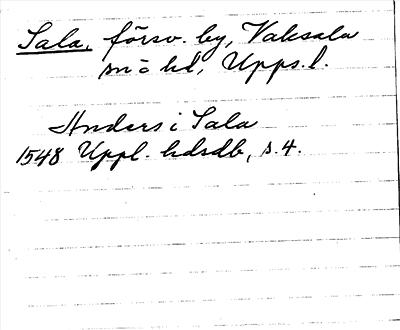 Sala, försv. by, Vaksala
sn o hd, Upps. l.
Anders i Sala
1548 Uppl. hdrdb, s. 4.